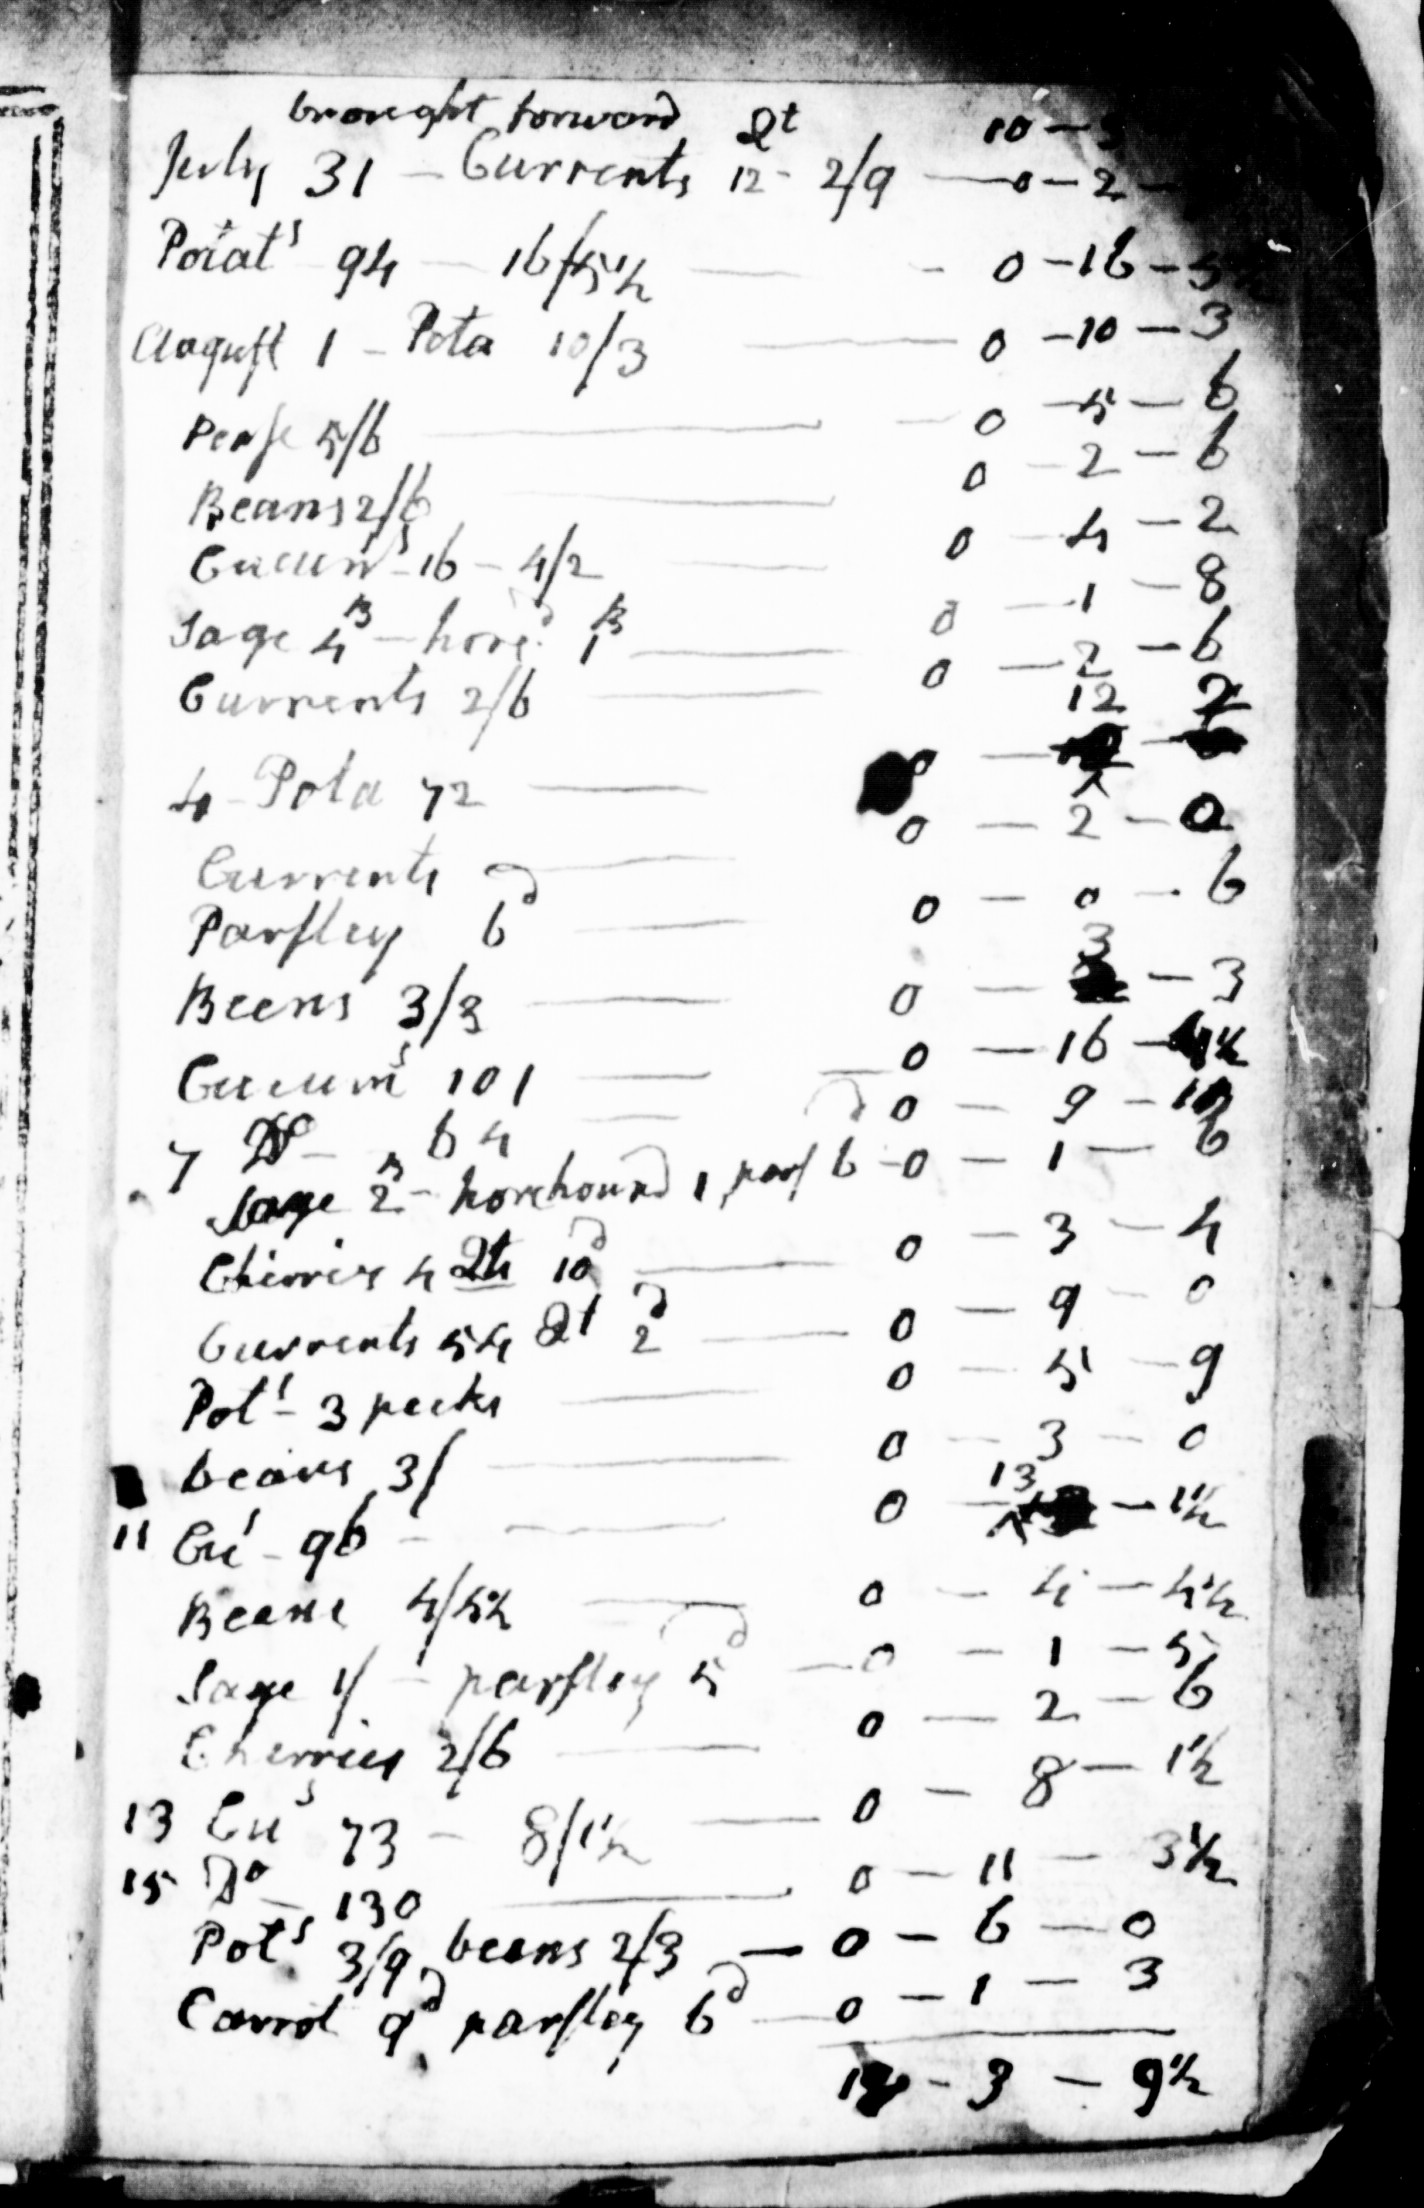 brought forward 10 - 
July 31 - Currents 12 Qt - 2/9 - 0 - 2 -
Potats 94 - 16/5½ - 0 - 16 - 5½
August 1 - Pota 10/3 - 0 - 10 - 3
Pease 5/6 - 0 - 5 - 6
Beans 2/6 - 0 - 2 - 6
Cucums - 16 - 4/2 - 0 - 4 - 2
Sage 4 B - hored. 1 B - 0 - 1 - 8
Currents 2/6 - 0 - 2 - 6
4 - Pota 72 - 0 - 12
Currents - 0 - 2 - 0
Parsley 6d - 0 - 0 - 6
Beens 3/3 - 0 - 3 - 3
Cucums 101 - 0 - 16
7 Do - 64 - 0 - 9 -
Sage 2 B - horehound 1, pars 6d - 0 - 1 - 6
Cherries 4 Qts 10d - 0 - 3 - 4
Currents 54 Qt 2d - 0 - 9 - 0
Pots - 3 pecks - 0 - 5 - 9
beans 3/ - 0 - 3 - 0
11 Cus - 96 - 0 - 13 - 1½
Beens 4/4½ - 0 - 4 - 4½
Sage 1/ - parsley 5d - 0 - 1 - 5
Cherries 2/6 - 0 - 2 - 6
13 Cus 73 - 8/1½ - 0 - 8 - 1½
15 Do - 130 - 0 - 11 - 3½
Pots 3/9, beens 2/3 - 0 - 6 - 0
Carrot 9d parsley 6d - 0 - 1 - 3
- 3 - 9½